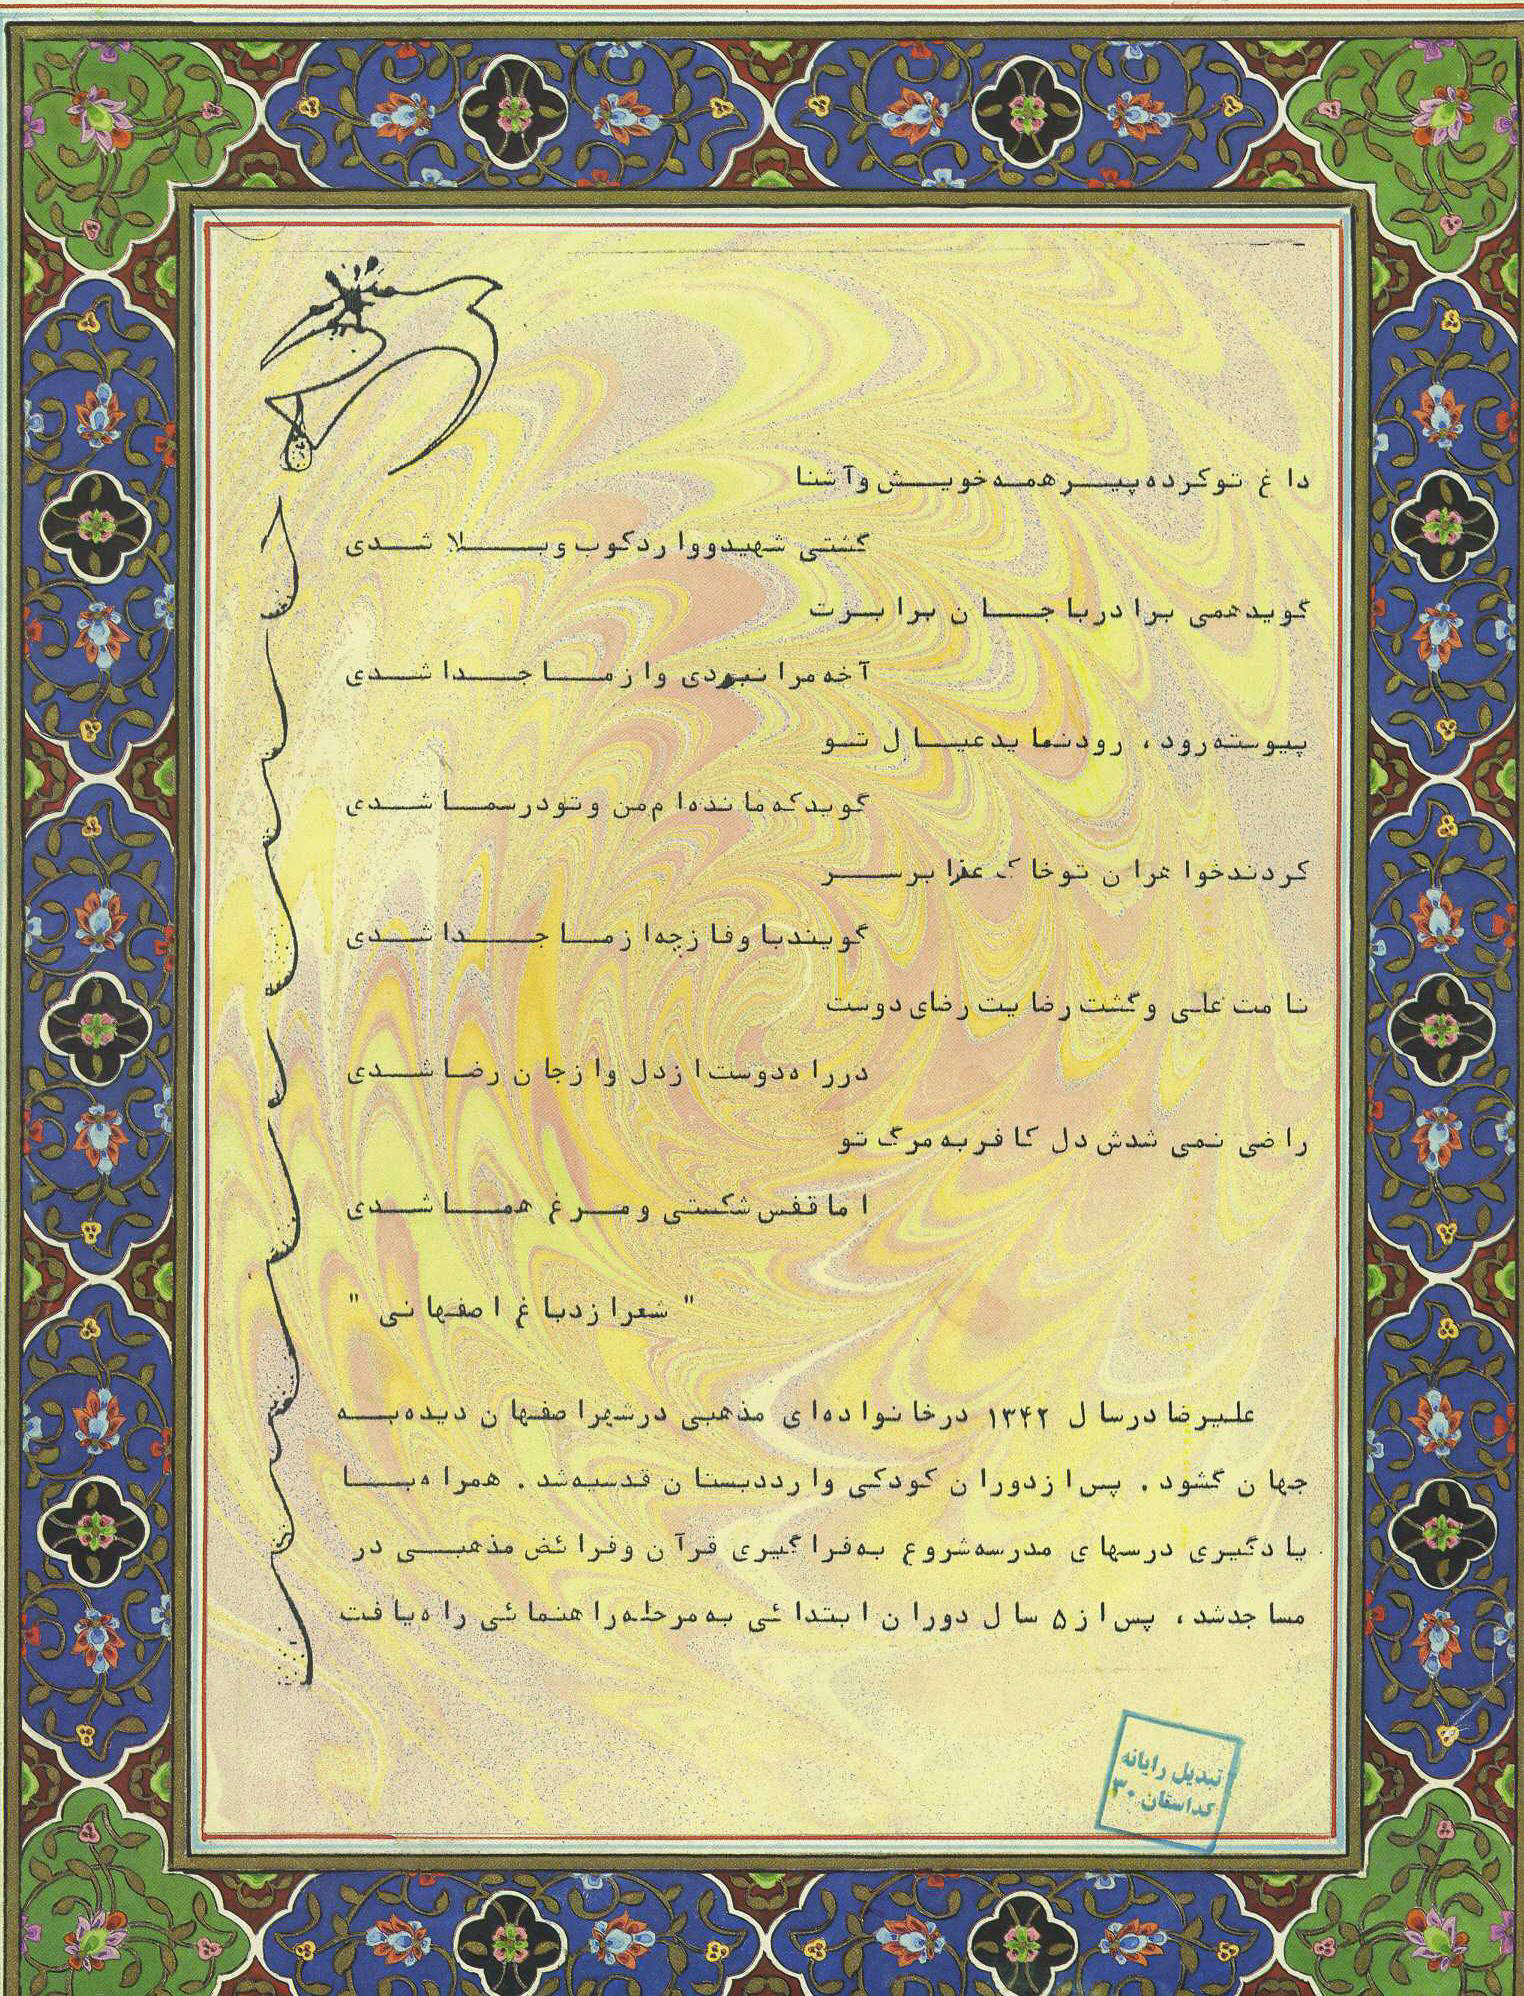 داغ تو کرده پیر همه خویش و آشنا
گشتی شهید و وارد کوب و بلا شدی
گوید همی برادر با جان برابرت
آخه مرا نبردی و از ما جدا شدی
پیوسته رود، رود نماید عیال تو
گوید که مانده‌ام من و تو در سما شدی
کردند خواهران تو خاک عزا بر سر
گویند با وفا ز چه از ما جدا شدی
نامت علی و گشت رضایت رضای دوست
در راه دوست از دل و از جان رضا شدی
راضی نمی شدش دل کافر به مرگ تو
اما قفس شکستی و مرغ هما شدی
" شعر از دباغ اصفهانی "
علیرضا در سال ۱۳۴۲ در خانواده‌ای مذهبی در شهر اصفهان دیده به
جهان گشود . پس از دوران کودکی وارد دبستان قدسیه شد . همراه با
یادگیری درسهای مدرسه شروع به فراگیری قرآن و فرائض مذهبی در
مساجد شد، پس از ۵ سال دوران ابتدائی به مرحله راهنمائی راه یافت
تبدیل رایانه
کد استان ۳۰